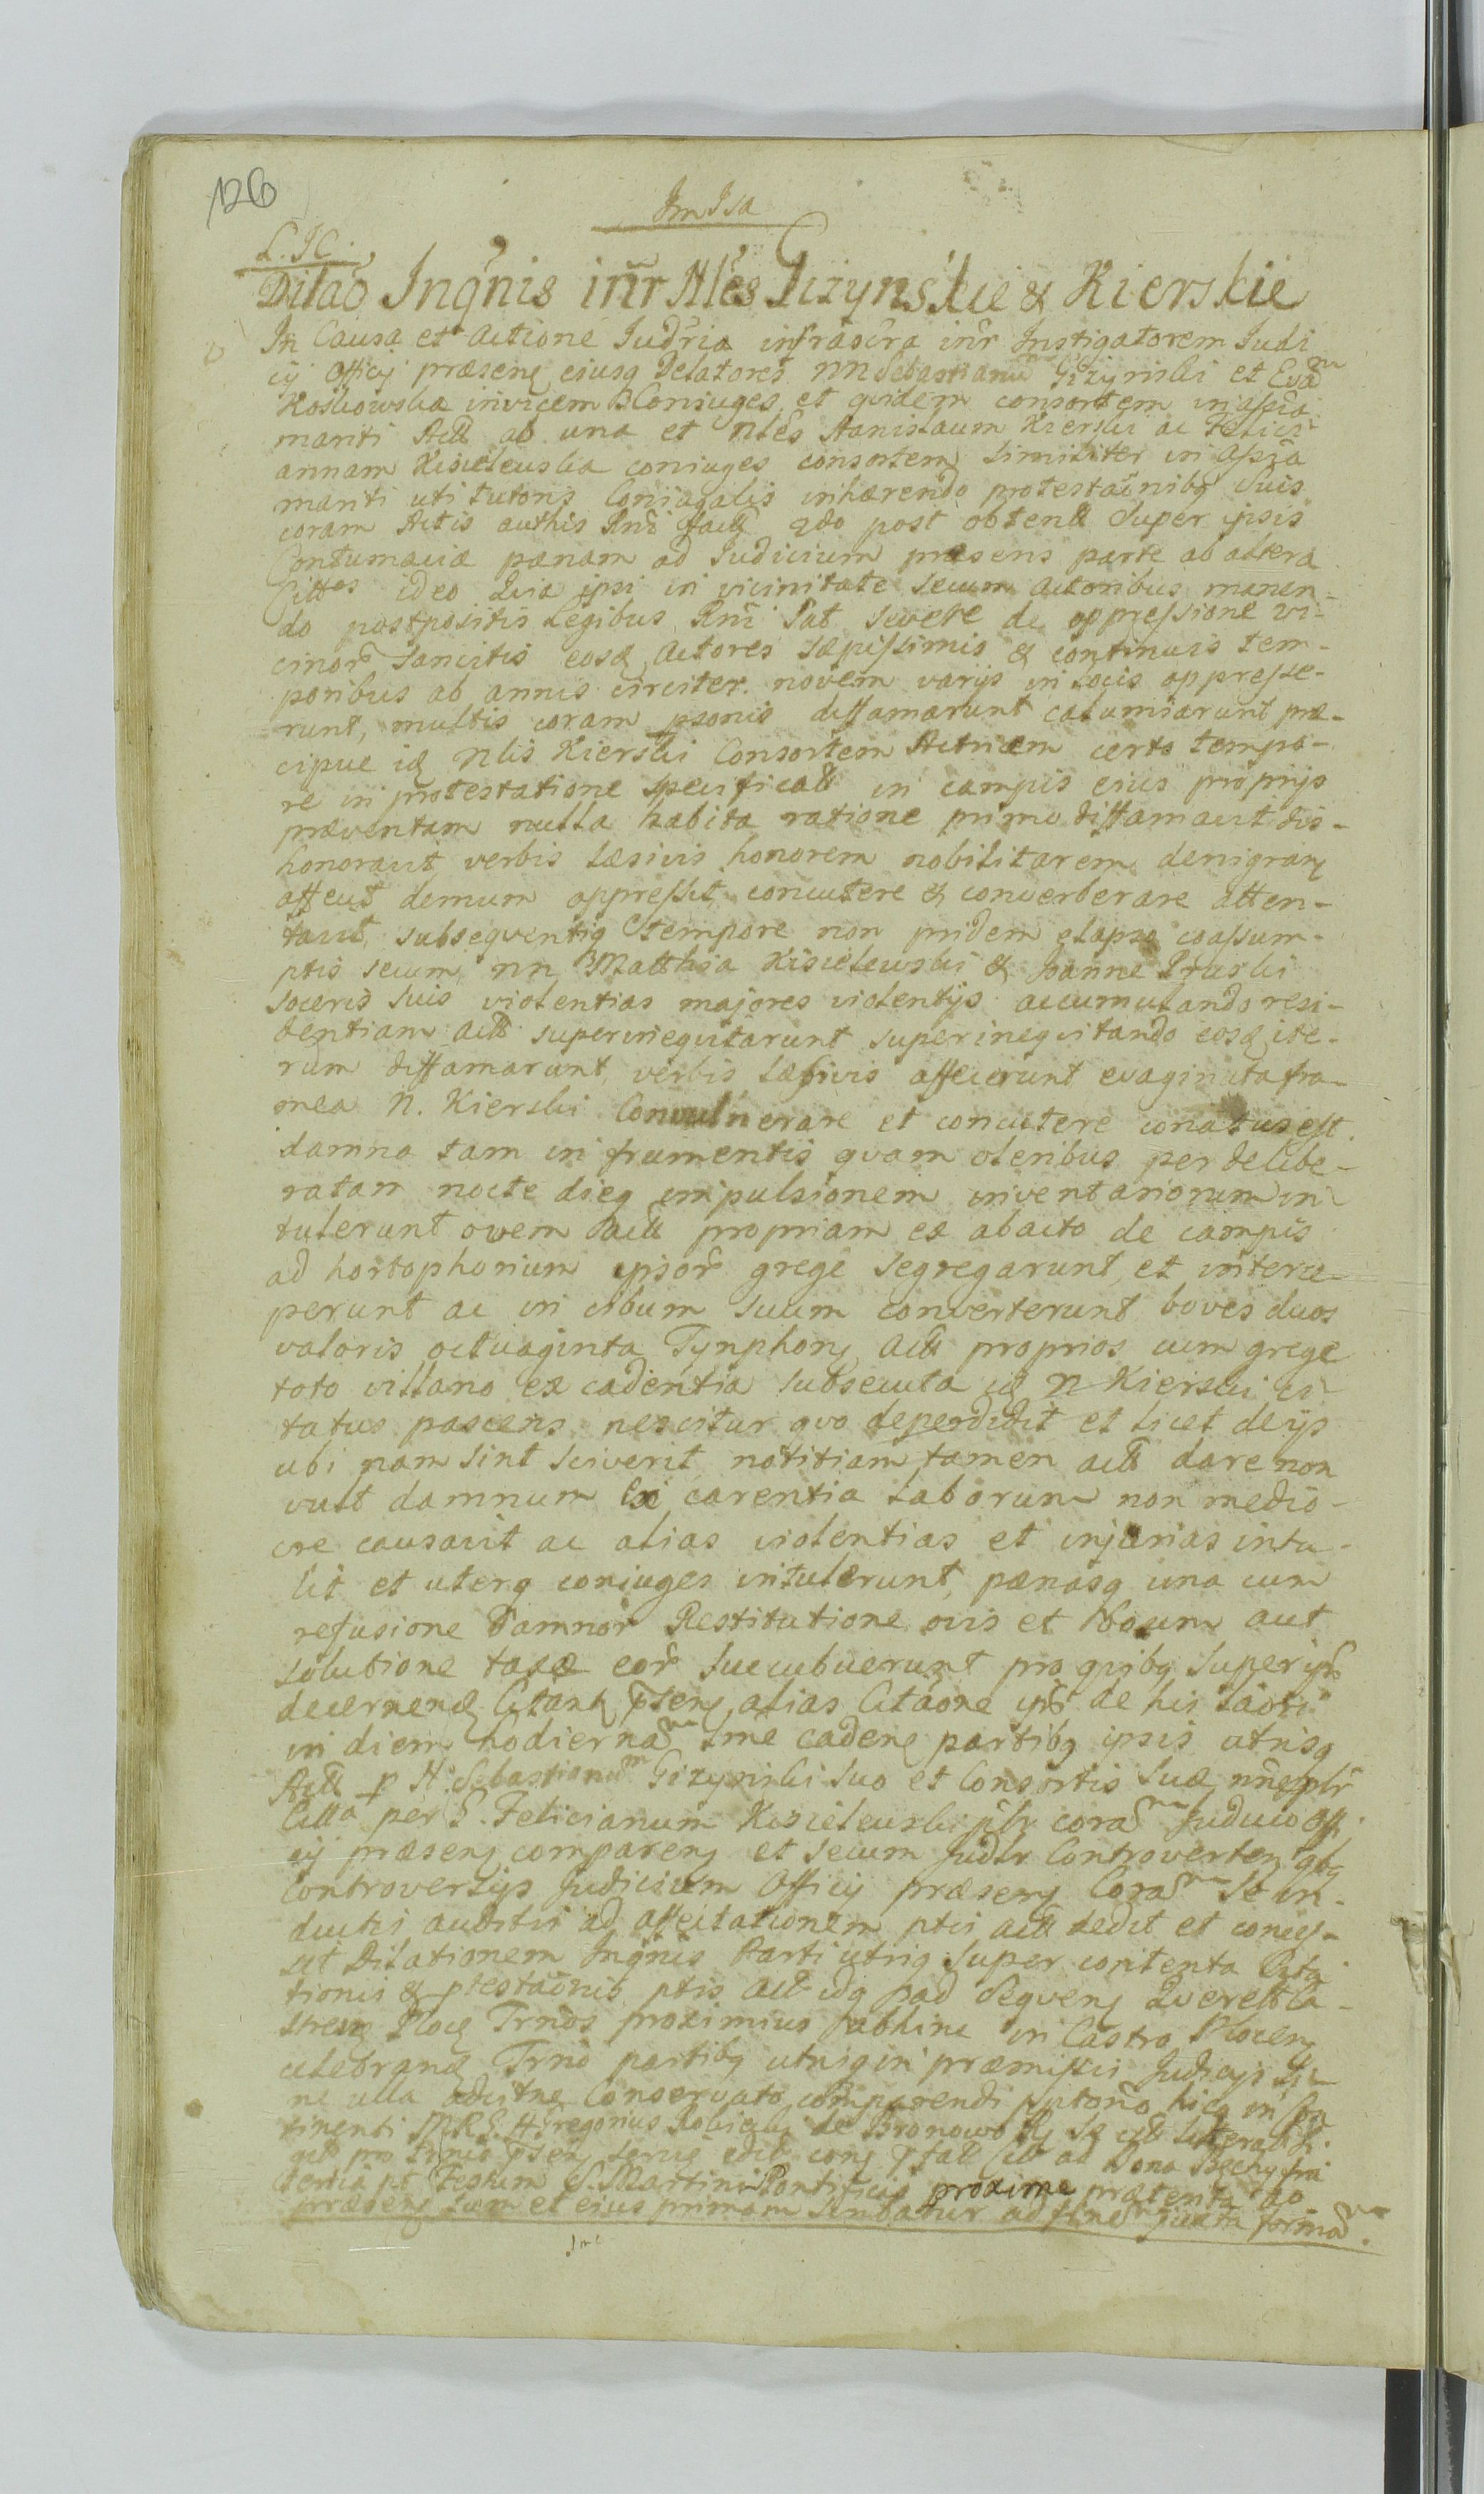 126
ImIsa
L. IC.
Dilaõ Inqnis inr Nles Giżynskie & Kierskie
In Causa et Actione Iudria infrascra inr Instigatorem Iudi
cij Officij præsenę eiusq Delatores NN Sebastianum Giżynski et Evam
Koskowska invicem Coniuges et quidem consortem in assia
mariti Actt ab una et Nles Stanislaum Kierski ac Felici
annam Kisielewska coniuges consortem similiter in assia
mariti uti tutoris Coniugalis inhærendo protestaõnibq suis
coram Actis authis Rni factę qdo post obtentt super ipsis
Contumaciæ pænam ad Iudicium præsens parte ab altera
Cittos ideo Quia ipsi in vicinitate secum Actoribus manen-
do postpositis Legibus Rni sat severe de oppressione vi-
cinor sancitis eosq Actores sæpissimis & continuis tem-
poribus ab annis circiter novem varijs in locis oppresse-
runt, multis coram psonis diffamarunt calumiarunt præ-
cipue idę Nlis Kierski Consortem Actricem certo tempo-
re in protestatione specificatt in campis eius proprijs
præventam nulla habita ratione primo diffamavit dis-
honoravit verbis læsivis honorem nobilitarem denigranę
affecit demum oppressit concutere & converberare atten-
tavit, subsequentiq tempore non pridem elapso coassum-
ptis secum NN Matthia Kisielewski & Joanne Pruski
soceris suis violentias majores violentijs accumulando resi-
dentiam actt superinequitarunt superinequitando eosq ite-
rum diffamarunt, verbis læsivis affecerunt evaginata fra-
mea N. Kierski Convulnerare et concutere conatus est.
damna tam in frumentis quam oleribus per delibe-
ratam nocte dieq impulsionem inventariorum in-
tulerunt ovem actt propriam ex abacto de campis
ad hortophorium ipsor grege segregarunt et interce-
perunt ac in cibum suum converterunt boves duos
valoris octuaginta Tynphonę actt proprios cum grege
toto villano ex cadentia subsecuta idę N Kierski ci-
tatus pascens nescitur quo deperdidit et licet de ijs
ubi nam sint sciverit notitiam tamen actt dare non
vult damnum ex carentia laborum non medio-
cre causavit ac alias violentias et injurias intu-
lit et uterq coniuges intulerunt, pænasq una cum
refusione damnor Restitutione ovis et boum aut
solutione taxæ eor succubuerunt pro quibq super ips
decernenę Citantę psenę alias Citaone ips de his laõri
in diem hodiernam sme cadenę partibq ipsis utrisq
Actt p N. Sebastianum Giżynski suo et Consortis suæ nne
Citta per G. Felicianum Kisielewski coram Iudicio Offi
cij præsenę comparenę et secum Iudlr Controvertenę qbq
Controversijs Iudicium Officij præsenę Coram se in-
ductis auditis ad affectationem ptis actt dedit et conces-
sit Dilationem Inqnis Parti utriq super contenta Cita
tionis & ptestaõnis ptis actt idq pad sequenę Querel Ca-
strenę Plocę Trnos proximius abhinc in Castro Plocenę
celebranę Trno partibq utrisq in præmissis Iudicijs si-
ne ulla adcitne Conservato comparendi ptorio hicq in
tinenti MRS. H Gregorius Robicki de Bronowo
pro trnis psenę servię
feria pt Festum S. Martini Pontificis proxime præterita ao
præsenę sum et eius primam scribatur ad finem juxta formam.
Ime